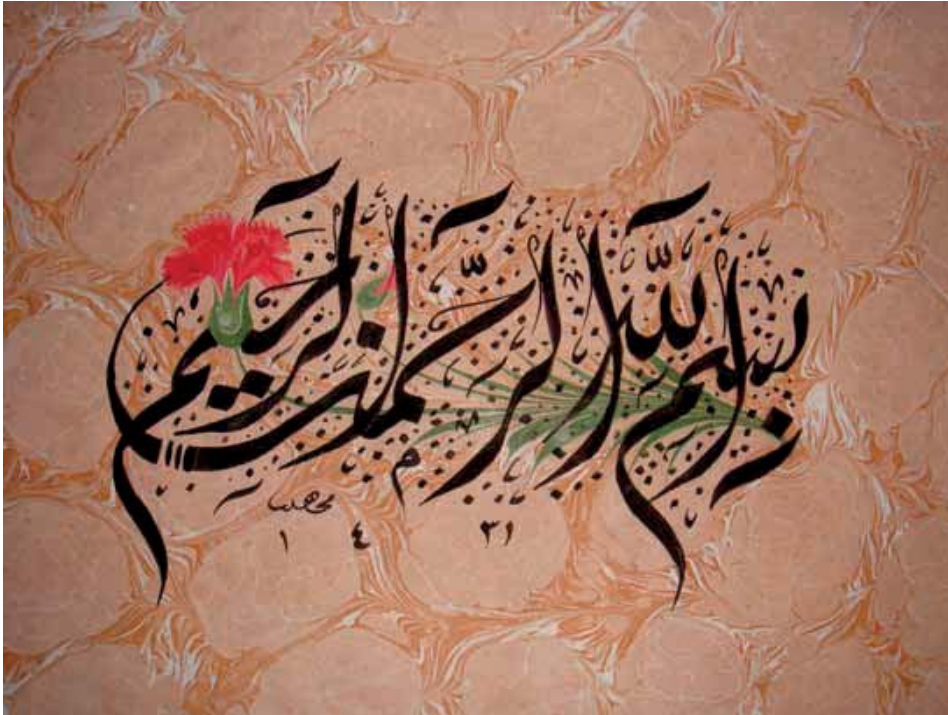 بسم الله الرحمن الرحيم
١٤٣١